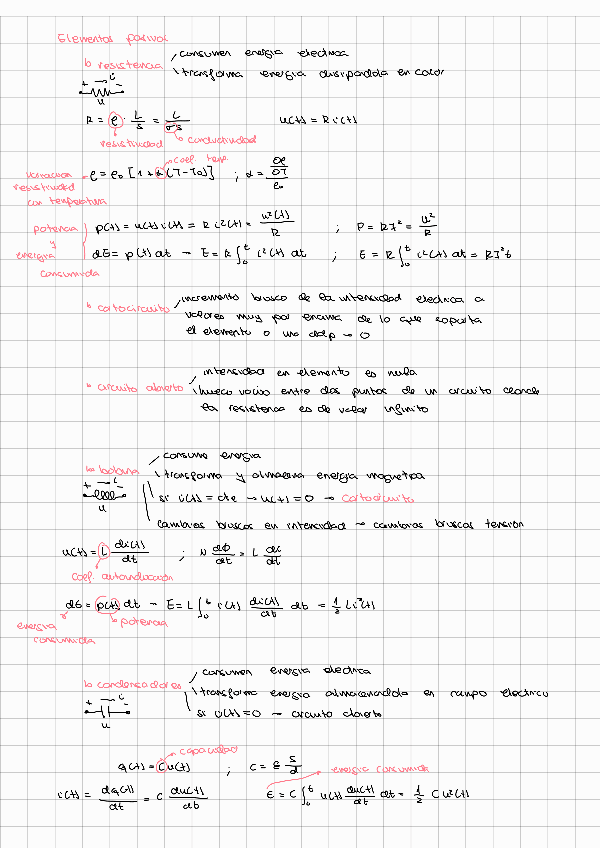 Elementos pasivos
↳ resistencia / consumen energia electrica
\ transforma energia disipandola en calor
+ i -
u
R = ρ · L/S = L/σS    u(t) = R i(t)
resistividad    conductividad
coef. temp.
variacion resistividad con temperatura → ρ = ρ₀ [1 + α (T - T₀)] ; α = (∂ρ/∂T)/ρ₀
potencia y energia consumida
p(t) = u(t) i(t) = R i²(t) = u²(t)/R ; P = R I² = U²/R
dE = p(t) dt → E = R ∫₀ᵗ i²(t) dt ; E = R ∫₀ᵗ i²(t) dt = R I² t
↳ cortocircuito / incremento brusco de la intensidad electrica a
valores muy por encima de lo que soporta
el elemento o una ddp → 0
↳ circuito abierto / intensidad en elemento es nula
\ hueco vacio entre dos puntos de un circuito donde
la resistencia es de valor infinito
↳ bobina / consume energia
\ transforma y almacena energia magnetica
+ i -
u
si i(t) = cte → u(t) = 0 → cortocircuito
cambios bruscos en intensidad → cambios bruscos tensión
u(t) = L di(t)/dt ; N dϕ/dt = L di/dt
coef. autoinducción
dE = p(t) dt → E = L ∫₀ᵗ i(t) di(t)/dt dt = 1/2 L i²(t)
energia consumida    potencia
↳ condensadores / consumen energia electrica
\ transforma energia almacenandola en campo electrico
+ i -
u
si u(t) = 0 → circuito abierto
capacidad
q(t) = C u(t) ; C = ε S/d
energia consumida
i(t) = dq(t)/dt = C du(t)/dt    E = C ∫₀ᵗ u(t) du(t)/dt dt = 1/2 C u²(t)